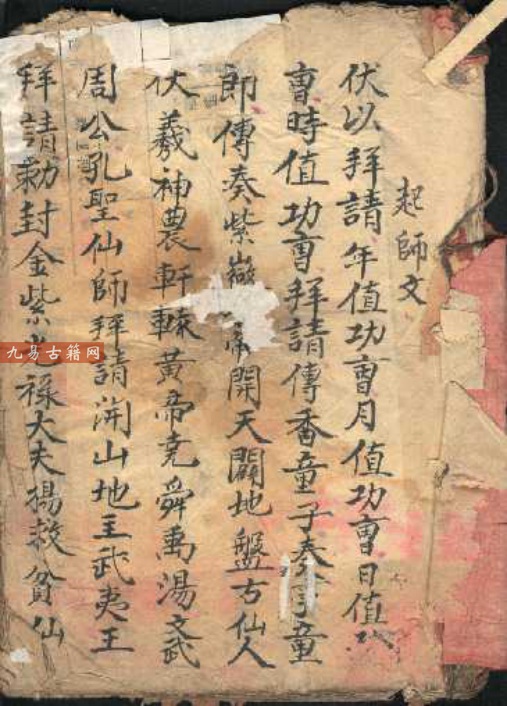 起師文
伏以拜請年值功曹月值功曹日值功
曹時值功曹拜請傳香童子奏事童
即傳奏紫嶶帝開天闢地盤古仙人
伏羲神農軒轅黃帝堯舜禹湯文武
周公孔聖仙師拜請開山地主武夷王
拜請勅封金紫光祿大夫揚救貧仙
九易古籍网